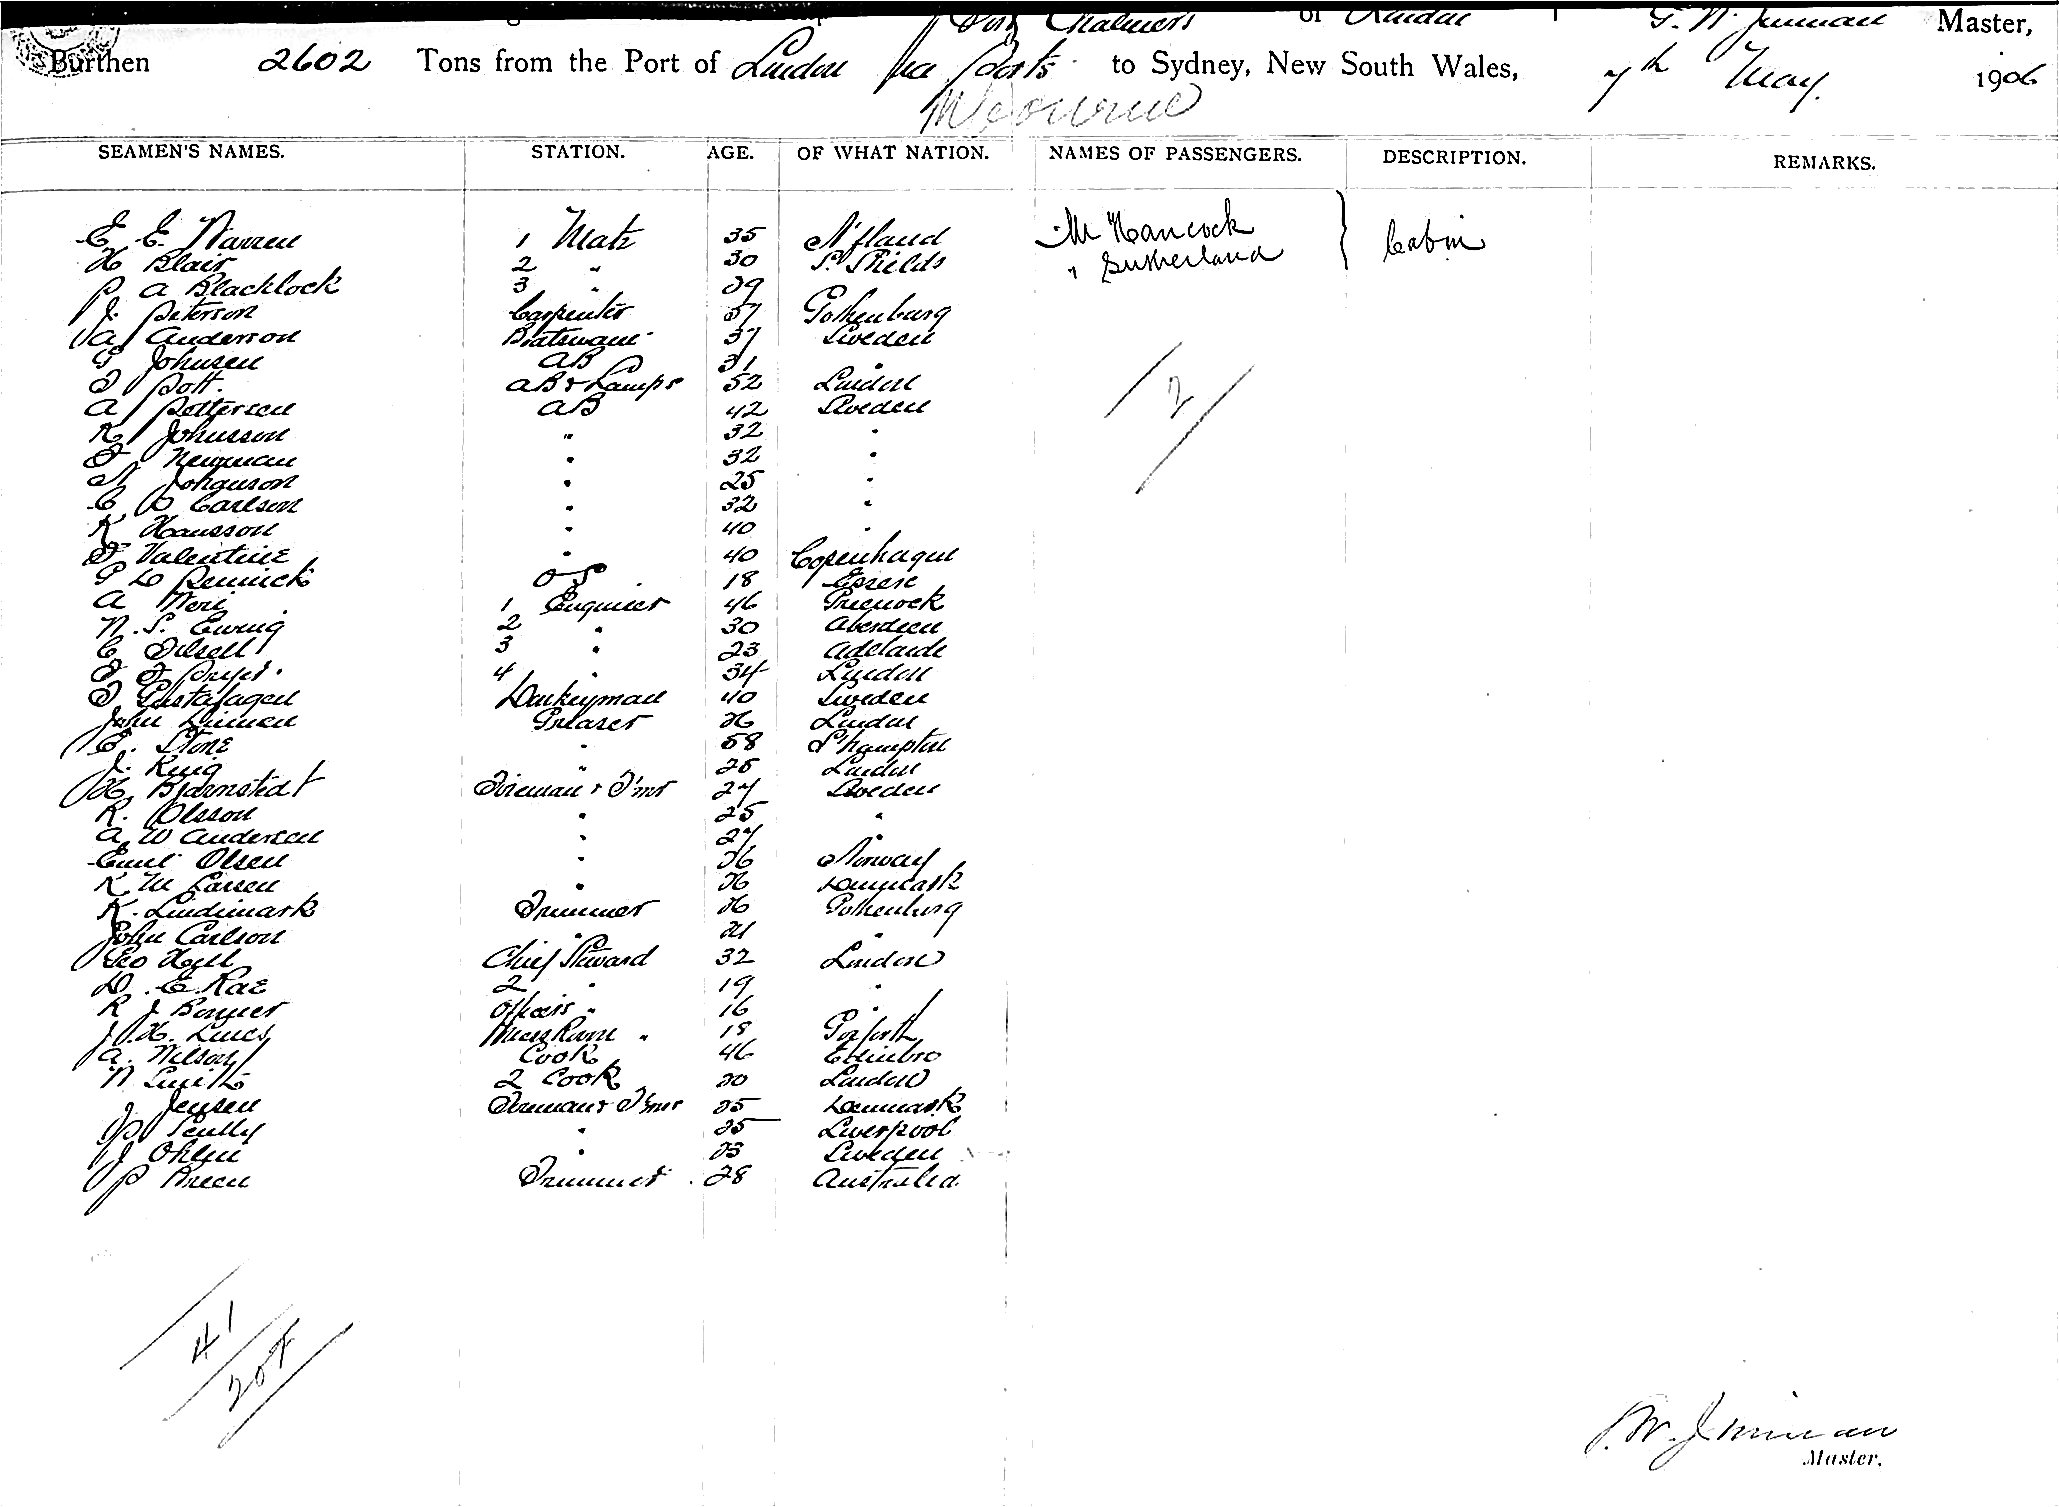 Port Chalmers of London Master,
Burthen 2602 Tons from the Port of London via Ports to Sydney, New South Wales, 7th May. 1906
Melbourne
SEAMEN'S NAMES. STATION. AGE. OF WHAT NATION. NAMES OF PASSENGERS. DESCRIPTION. REMARKS.
E. E. Warren 1 Mate 35 N'fland Mr Hancock Cabin
H Blair 2 " 30 S. Shields " Sutherland
P A Blacklock 3 " 29
J. Peterson Carpenter 37 Gothenburg
A Anderson Boatswain 37 Sweden
Johnsen AB 31 "
Pott. AB & Lamps 52 London
A Petterson AB 42 Sweden
K Johnsson " 32 "
Newman " 32 "
" 25 "
C Carlson " 32 "
K Hansson " 40 "
Valentine " 40 Copenhagen
OS 18 Essex
A Weir 1 Engineer 46 Greenock
N. S. Ewing 2 " 30 Aberdeen
C 3 " 23 Adelaide
4 " 34 London
Donkeyman 40 Sweden
John Greaser 26 London
C. Stone " 58 S'hampton
J. King " 25 London
H Bjornstedt Fireman & T'mr 27 Sweden
K. Olsson " 25 "
A W Andersen " 27 "
Emil Olsen " 26 Norway
K M Larsen " 26 Denmark
K. Lindmark Trimmer 26 Gothenburg
John Carlson " 21 "
Geo Hill Chief Steward 32 London
D. E. Rae 2 " 19 "
R J Officers " 16 "
J. H. Lines Mess Room " 18
A. Wilson Cook 46 Edinbro
N Smith 2 Cook 20 London
J. Jensen Fireman & T'mr 25 Denmark
P Scully " 25 Liverpool
J Ohlin " 23 Sweden
P Breen Trimmer 28 Australia
2
41
Master.